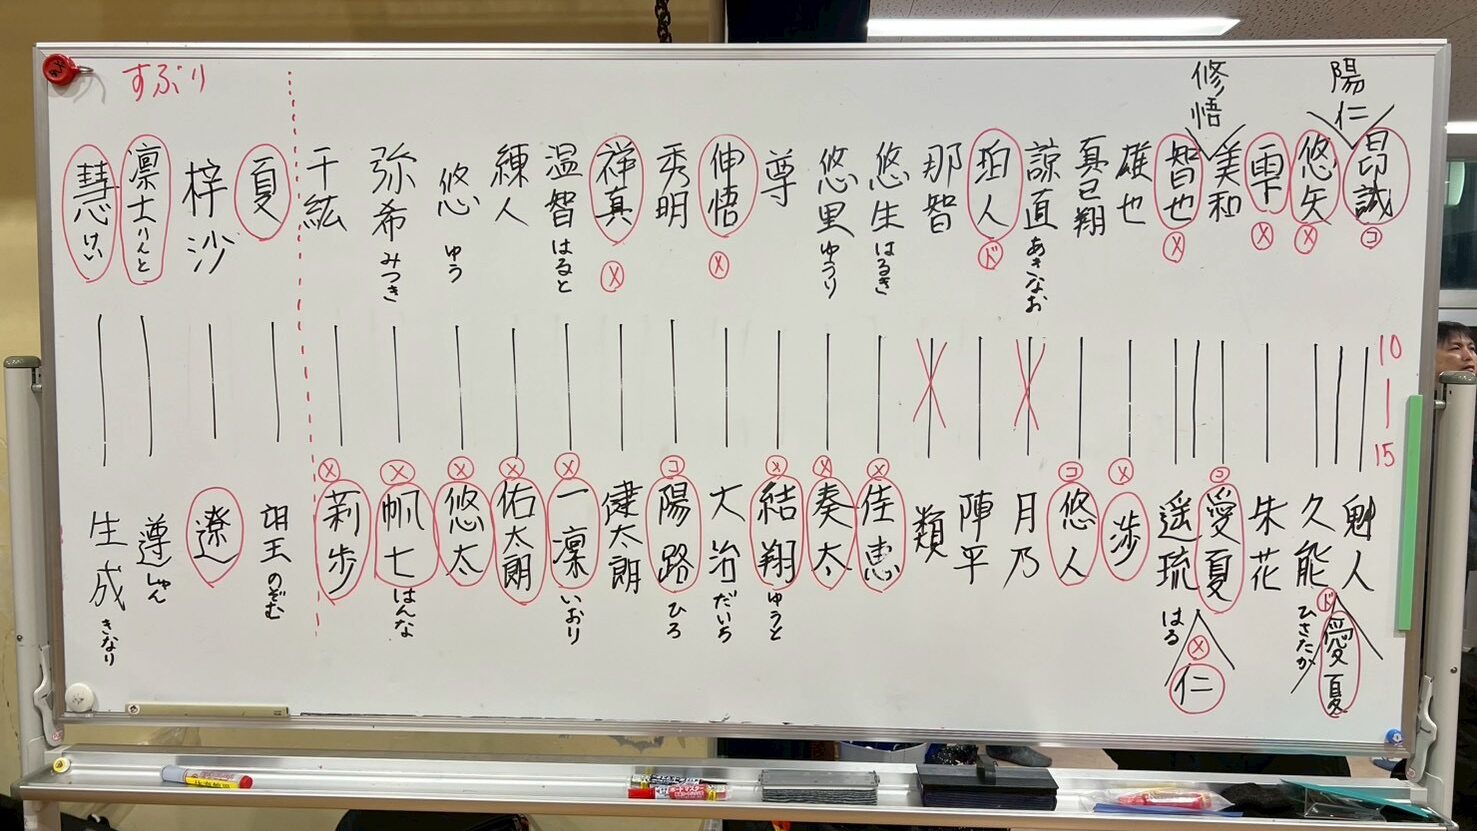 すぶり
修悟
陽仁
昂誠 コ
悠矢 メ
雫 メ
美和
智也 メ
雄也
真已翔
諒直 あきなお
珀人 ド
那智
悠生 はるき
悠里 ゆうり
尊
伸悟 メ
秀明
禅真 メ
温智 はると
練人
悠 ゆう
弥希 みつき
千紘
夏
梓沙
凛士 りんと
慧 けい
10
|
15
魁人
久能 ひさたか
ド 愛夏
朱花
コ 愛夏
遥琉 はる
メ 仁
メ 渉
コ 悠人
月乃
陣平
類
メ 佳恵
メ 奏太
メ 結翔 ゆうと
大治 だいち
コ 陽路 ひろ
健太朗
メ 一凜 いおり
メ 佑太朗
メ 悠太
メ 帆七 はんな
メ 莉歩
遼
生成 きなり